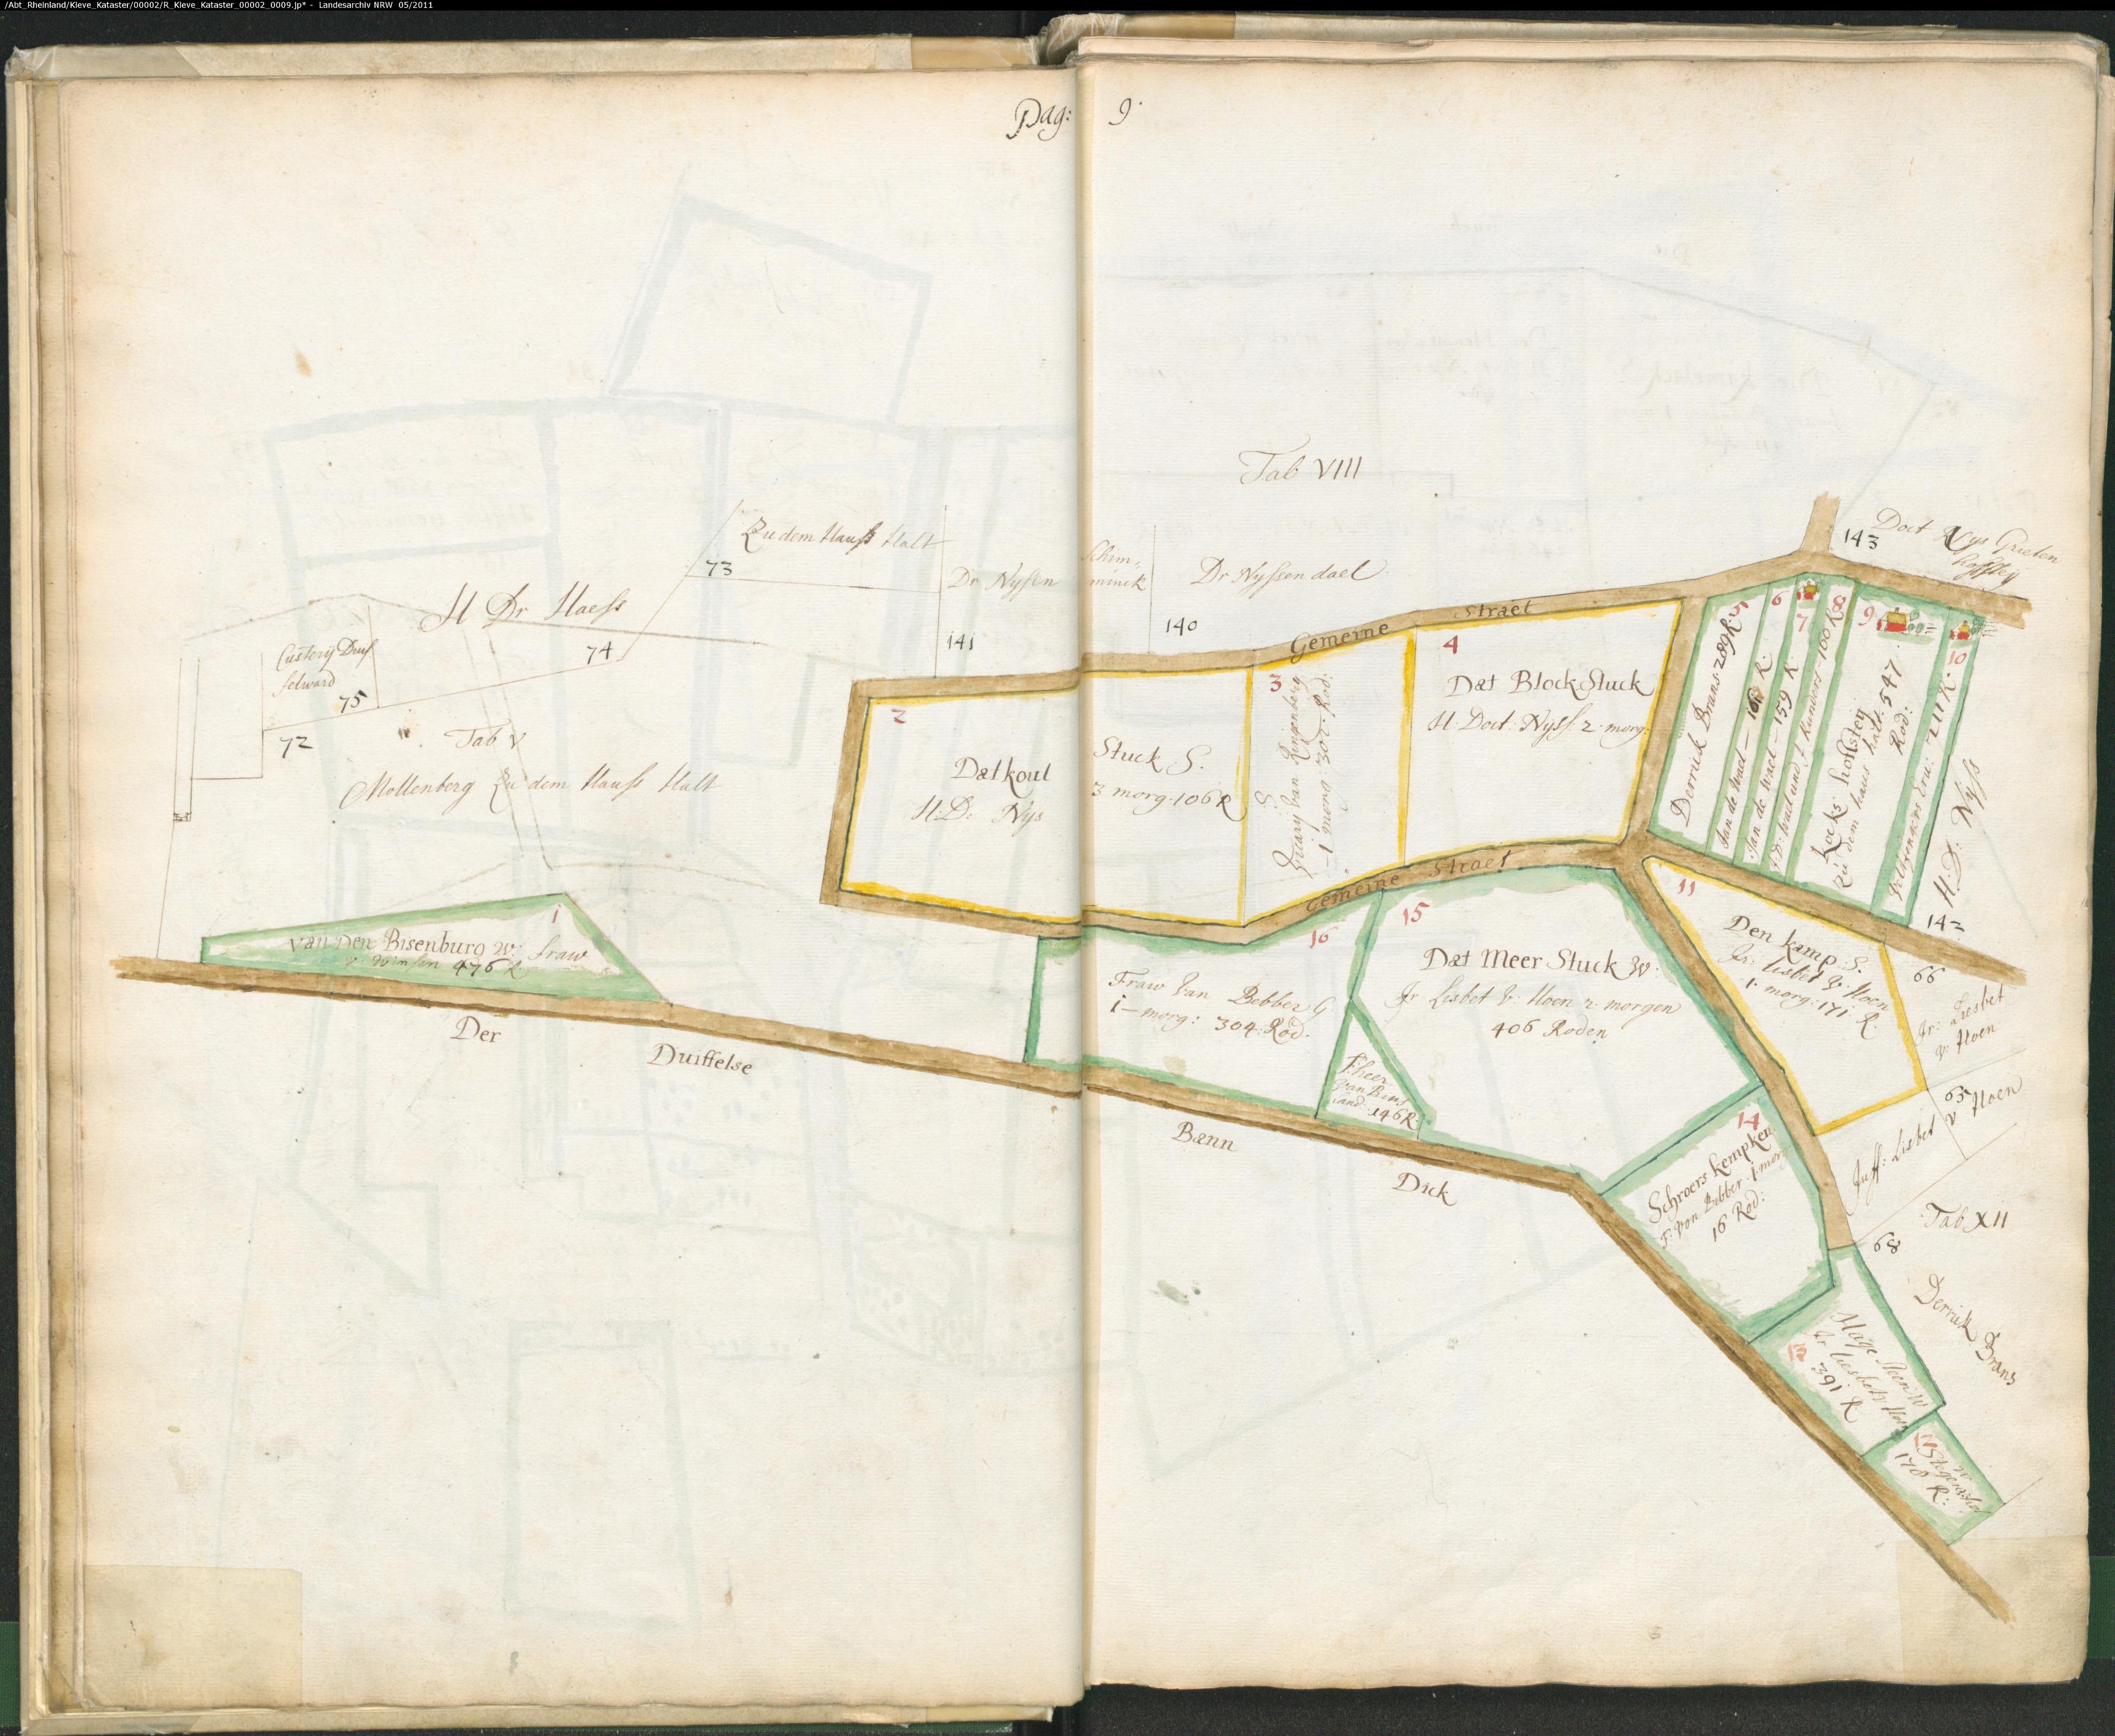 /Abt_Rheinland/Kleve_Kataster/00002/R_Kleve_Kataster_00002_0009.jp* - Landesarchiv NRW 05/2011
Pag: 9.
Tab VIII
Zu dem Hauß Halt
73
Dr Nyssen
Schim,
minck
Dr Nyssen dael
143
Doct Nys Grieten
H Dr Haess
74
141
140
Custerij Duif
felward
75
72
Tab V
Mollenberg Zu dem Hauss Halt
Gemeine Straet
2
Dat kout Stuck S.
H: D: Nys 3 morg: 106 R
3
S
van Ringenberg
1 morg: 302 Rod:
4
Dat Block Stuck
H: Doct: Nyss 2 morg:
5
Derrick Brans 289 R:
6
Jan de Wael
7
Jan de Wael - 159 R
8
100 R
9
Kocks hoffsteij
Zu dem haus halt 547
Rod:
10
211 R:
H: D: Nyss
142
Gemeine Straet
1
van Den Bisenburg W: fraw
476 R
16
Fraw van Bebber G
1 - morg: 304 Rod:
15
Dat Meer Stuck W:
Jr Lisbet V: Hoen 2 morgen
406 Roden
van Rens
land 146 R:
11
Den kamp S.
Jr: lisbet V: Hoen
1 morg: 171 R:
66
Jr: Liesbet
V: Hoen
65
Juff: Lisbet V Hoen
Tab XII
68
Derrick Brans
14
Schroers kempken
F: von Bebber 1 morg
16 Rod:
13
Jr liesbet V Hoen
391 R
12
W
178
R:
Der Duiffelse Bænn Dick